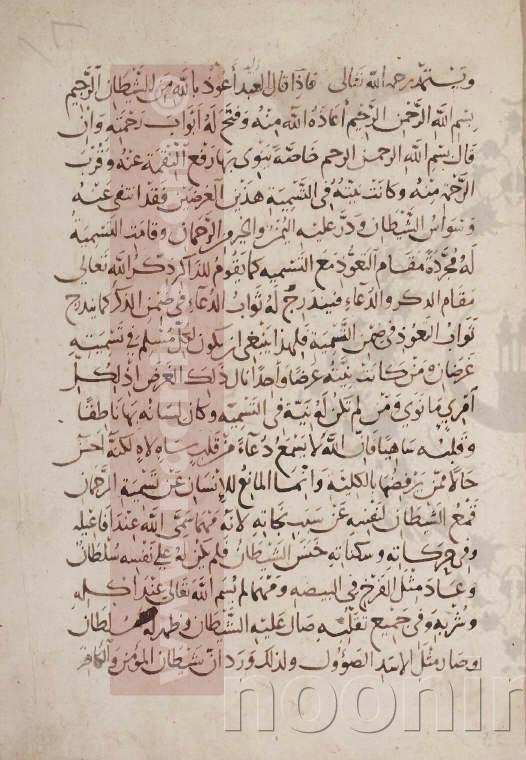 ويستمد رحمة الله تعالى فاذا قال العبد أعوذ بالله من الشيطان الرجيم
بسم الله الرحمن الرحيم أعاذه الله منه وفتح له أبواب رحمته وان
قال بسم الله الرحمن الرحيم خاصة ينوى بها رفع النقمة عنه وقرب
الرحمة منه وكانت نيته في التسمية هذين الغرضين فقد انتفى عنه
وسواس الشيطان ودر عليه الرحمان وقامت التسمية
له مجردة مقام التعوذ مع التسمية كما تقوم للذاكر ذكر الله تعالى
مقام الذكر والدعاء فيندرج له ثواب الدعاء في ضمن الذكر كما يندرج
ثواب التعوذ في ضمن التسمية فلهذا ينبغي ان يكون لكل مسلم في تسميته
غرضان ومن كانت نيته غرضا واحدا نال ذلك الغرض اذ لكل
امرئ ما نوى ومن لم تكن له نية في التسمية وكان لسانه بها ناطقا
وقلبه ساهيا فان الله لا يسمع دعاء من قلب ساه لاه لكنه احسن
حالا ممن يرفضها بالكلية وانما المانع للإنسان عن تسمية الرحمان
قمع الشيطان لنفسه عن سبب نجاته لأنه مهما سمى الله عند افاعيله
وفي حركاته وسكناته خنس الشيطان فلم يكن له على نفسه سلطان
وعاد مثل الفرخ في البيضة ومهما لم يسم الله تعالى عند اكله
وشربه وفي جميع تقلبه صال عليه الشيطان وظهر له سلطان
وصار مثل الاسد الصؤول ولذلك ورد ان شيطان المؤمن والكافر
noonin